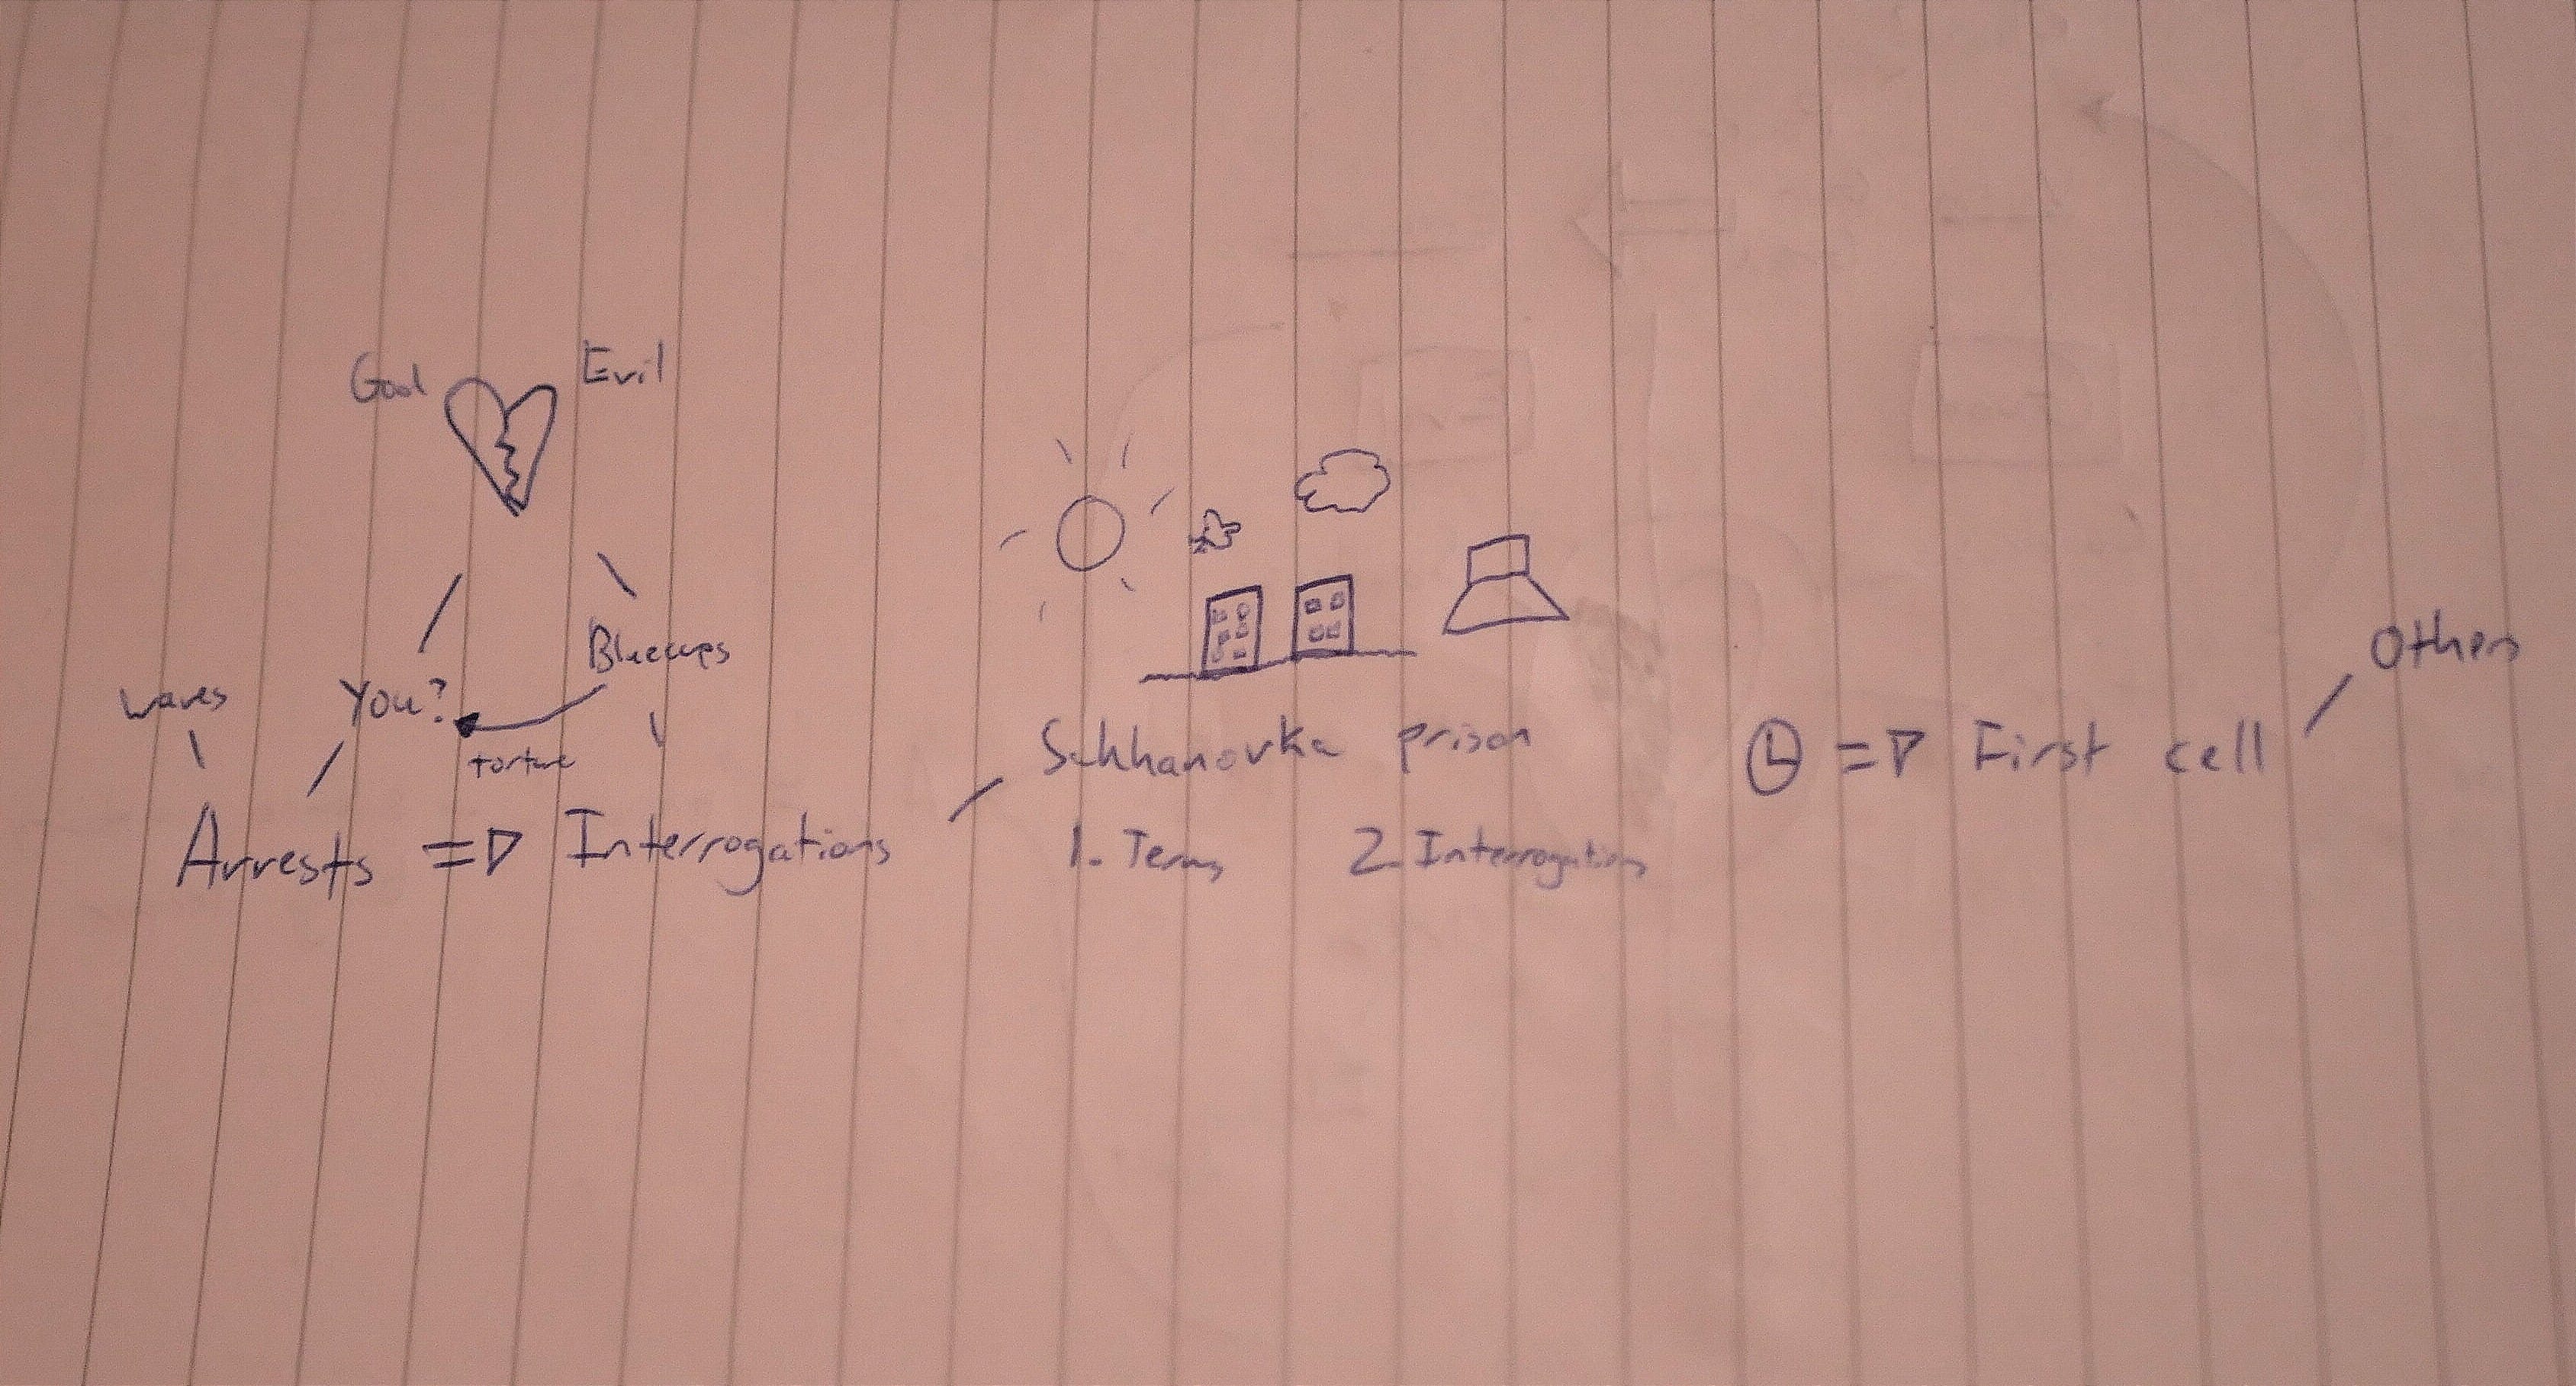 Good Evil
Bluecaps
waves You?
torture
Others
Sukhanovka prison
First cell
Arrests Interrogations
1. Terms 2. Interrogations